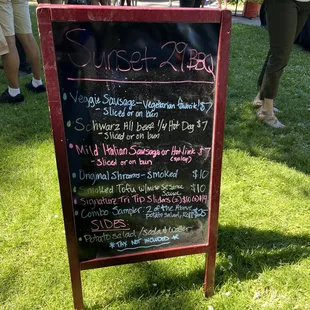 Sunset 29 BBQ
Veggie Sausage - Vegetarian favorite! $7
- Sliced or on bun
Schwarz All beef 1/4 Hot Dog $7
- sliced or on bun
Mild Italian Sausage or Hot link $7
- Sliced or on bun
Original Shrooms - Smoked $10
Smoked Tofu w/miso Sesame $10
Sauce
Signature Tri Tip Sliders
Combo Sampler: 2 of the Above
potato salad, Roll $25
SIDES:
Potato salad / soda
*TAX NOT INCLUDED*